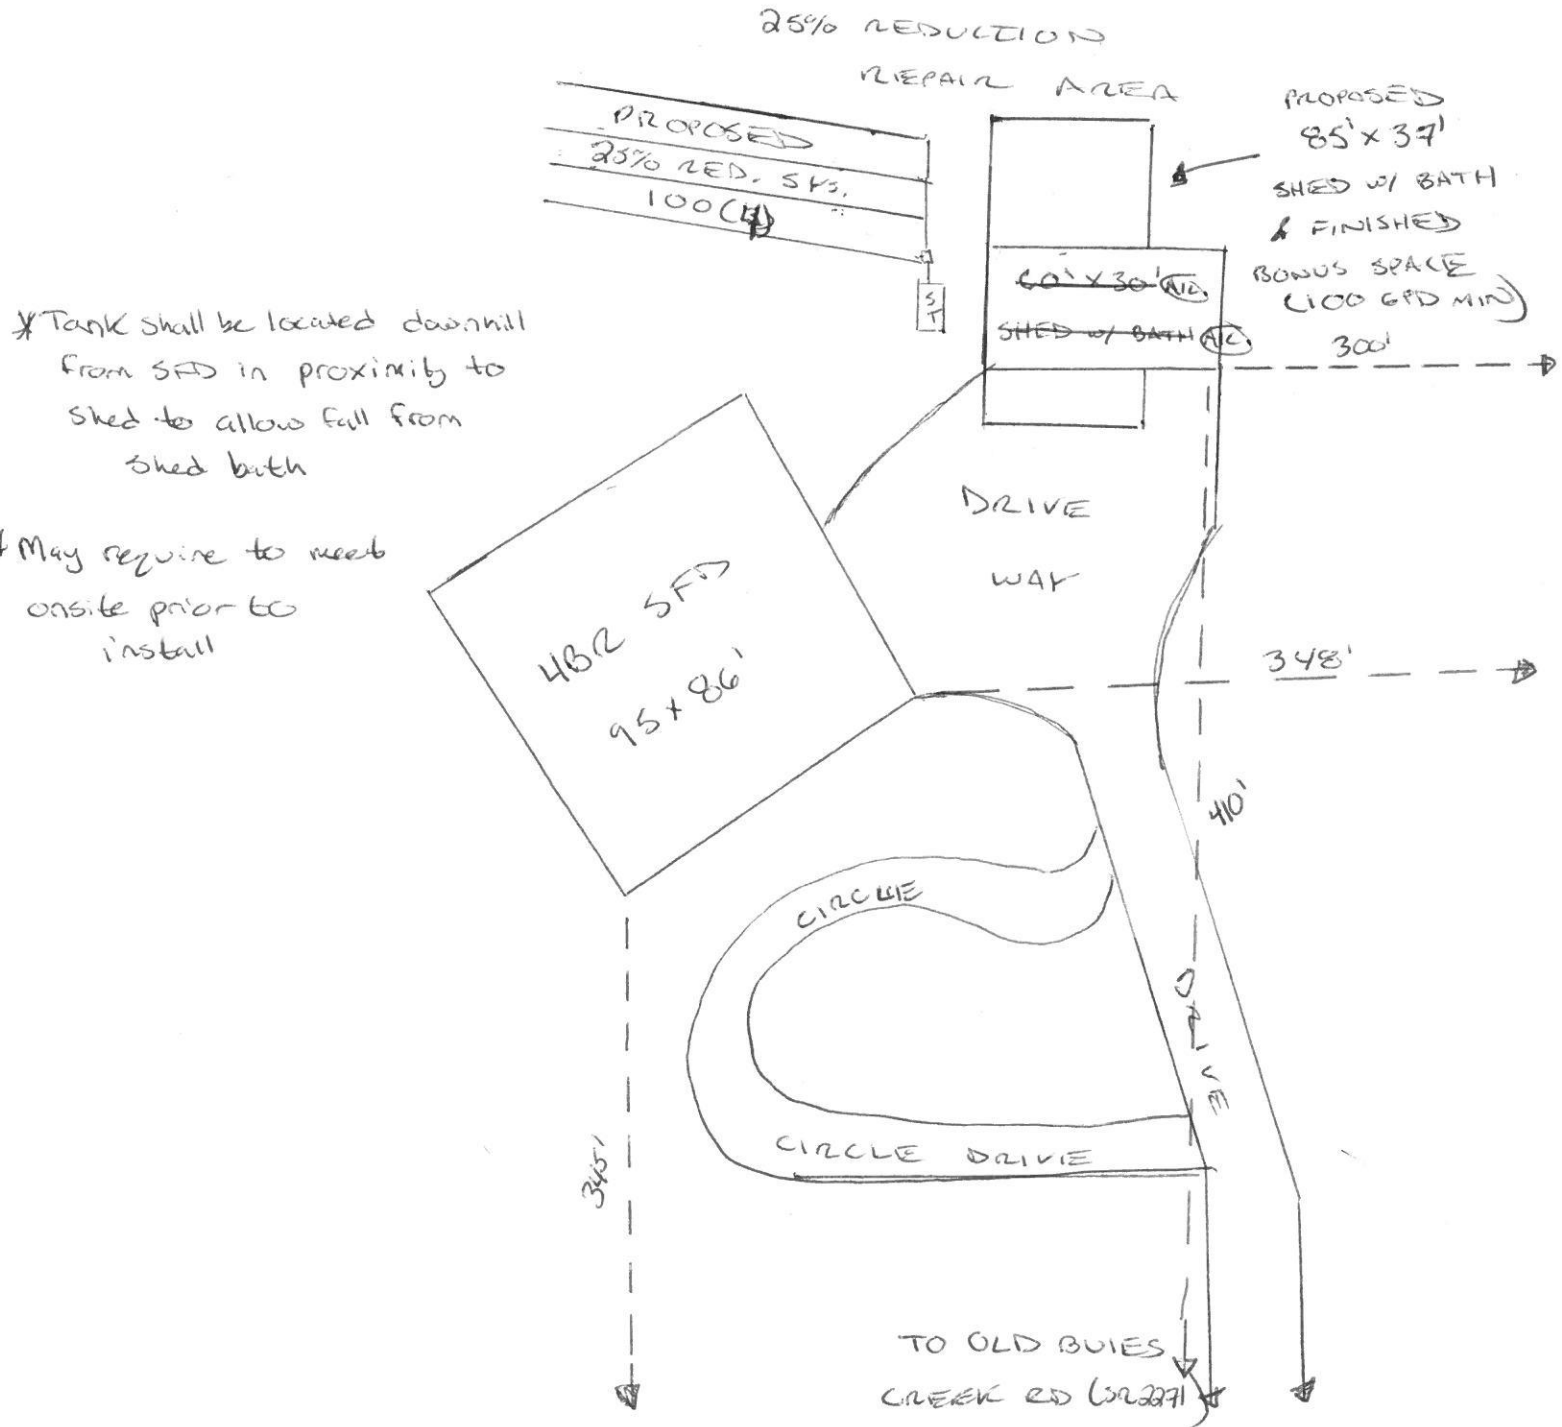 25% REDUCTION
REPAIR AREA
PROPOSED
25% RED. SYS.
100(4)
PROPOSED
85' x 37'
SHED W/ BATH
& FINISHED
BONUS SPACE
(100 GPD MIN)
S
T
60' x 30'
SHED W/ BATH
300'
* Tank shall be located downhill
from SFD in proximity to
shed to allow fall from
shed bath
* May require to meet
onsite prior to
install
DRIVE
WAY
4BR SFD
95 x 86'
348'
410'
CIRCLE
DRIVE
CIRCLE DRIVE
345'
TO OLD BUIES
CREEK RD (SR2271)